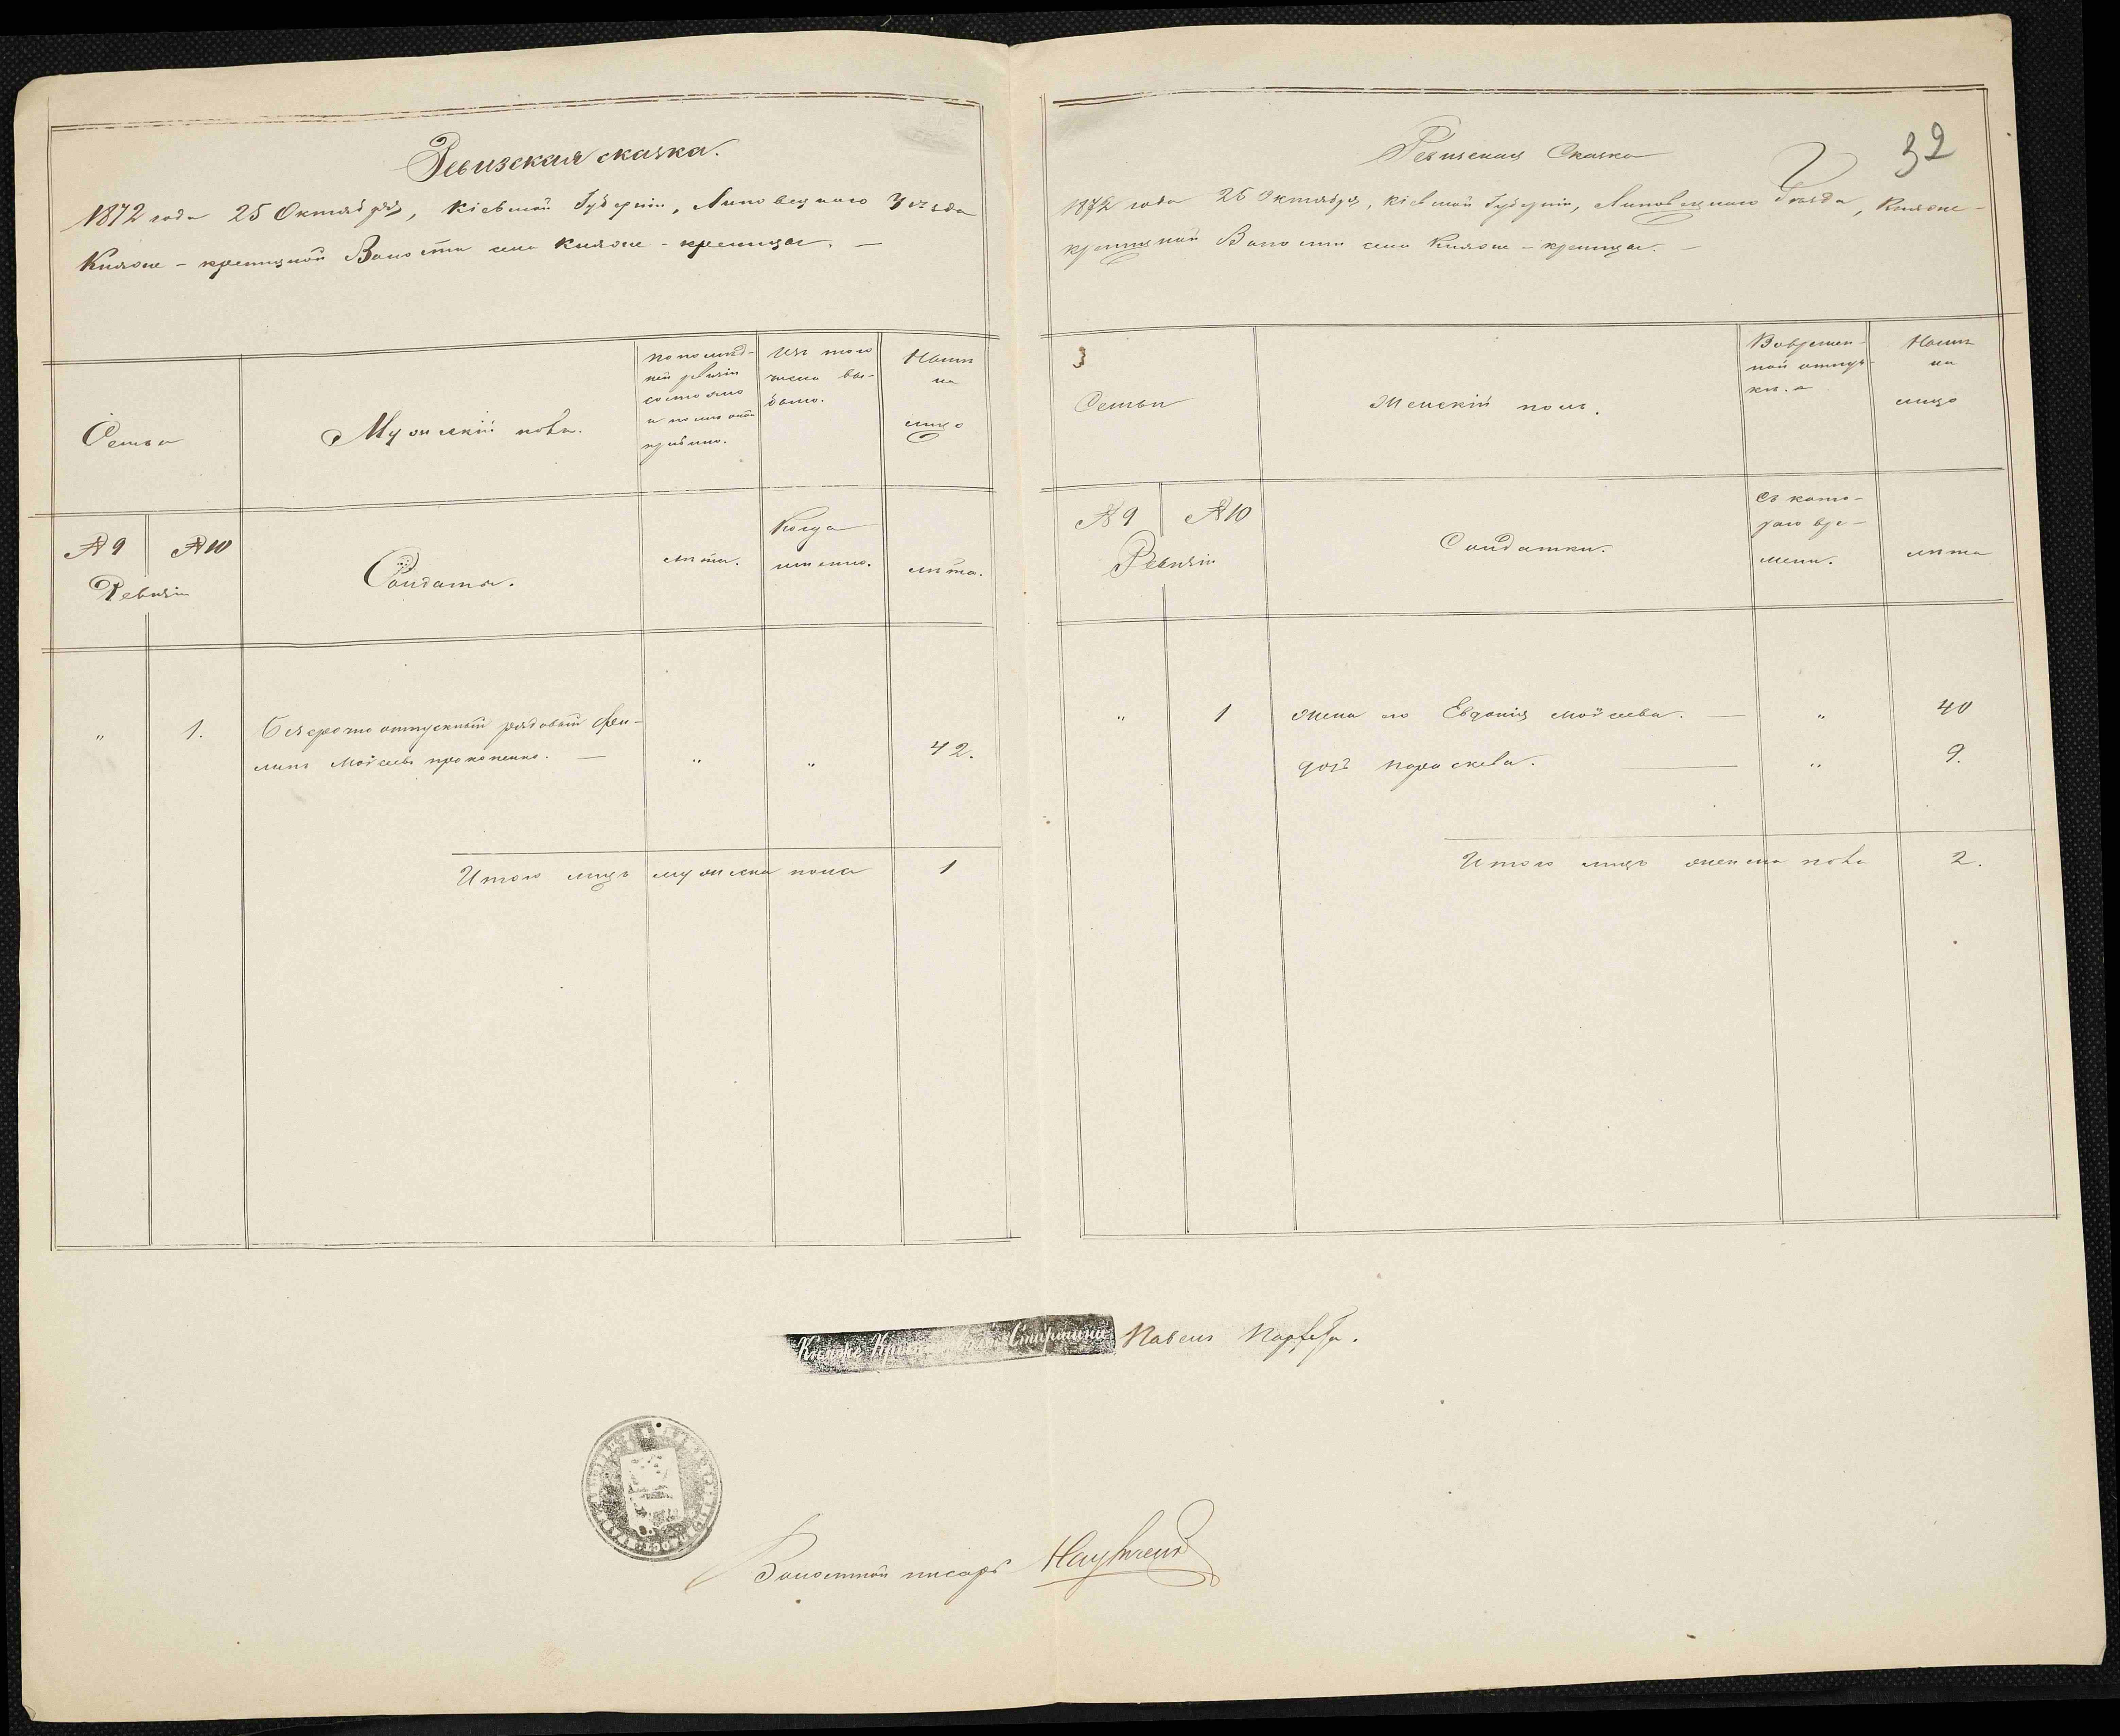 Ревизская сказка.
1872 года 25 Октября, Кіевской Губерніи, Липовецкаго Уезда
Княже-креницкой Волости села Княже-креницы. —
Семьи
Мужескій полъ.
По послѣд-
ней ревизіи
состояло
и после оной
прибыло.
Изъ того
числа вы-
было.
Налицо
на
лицо
№ 9
№ 10
Ревизіи
Солдаты.
лѣта.
Когда
именно.
лѣта.
" 1. Безсрочно отпускный рядовый Фи-
липъ Мойсеевъ Прокопенко. — " " 42.
Итого лицъ мужеска пола 1
32
Ревизская Сказка
1872 года 25 Октября, Кіевской Губерніи, Липовецкаго Уезда, Княже-
креницкой Волости села Княже-креницы. —
Семьи
Женскій полъ.
Вовремен-
ной отлуч-
кѣ.
Налицо
на
лицо
№ 9
№ 10
Ревизіи
Солдатки.
Съ кото-
раго вре-
мени.
лѣта
" 1 жена его Евдокія Мойсеева. — " 40
дочь Параскева. — " 9.
Итого лицъ женска пола 2.
Княже Старшина Павелъ
Волостной писарь